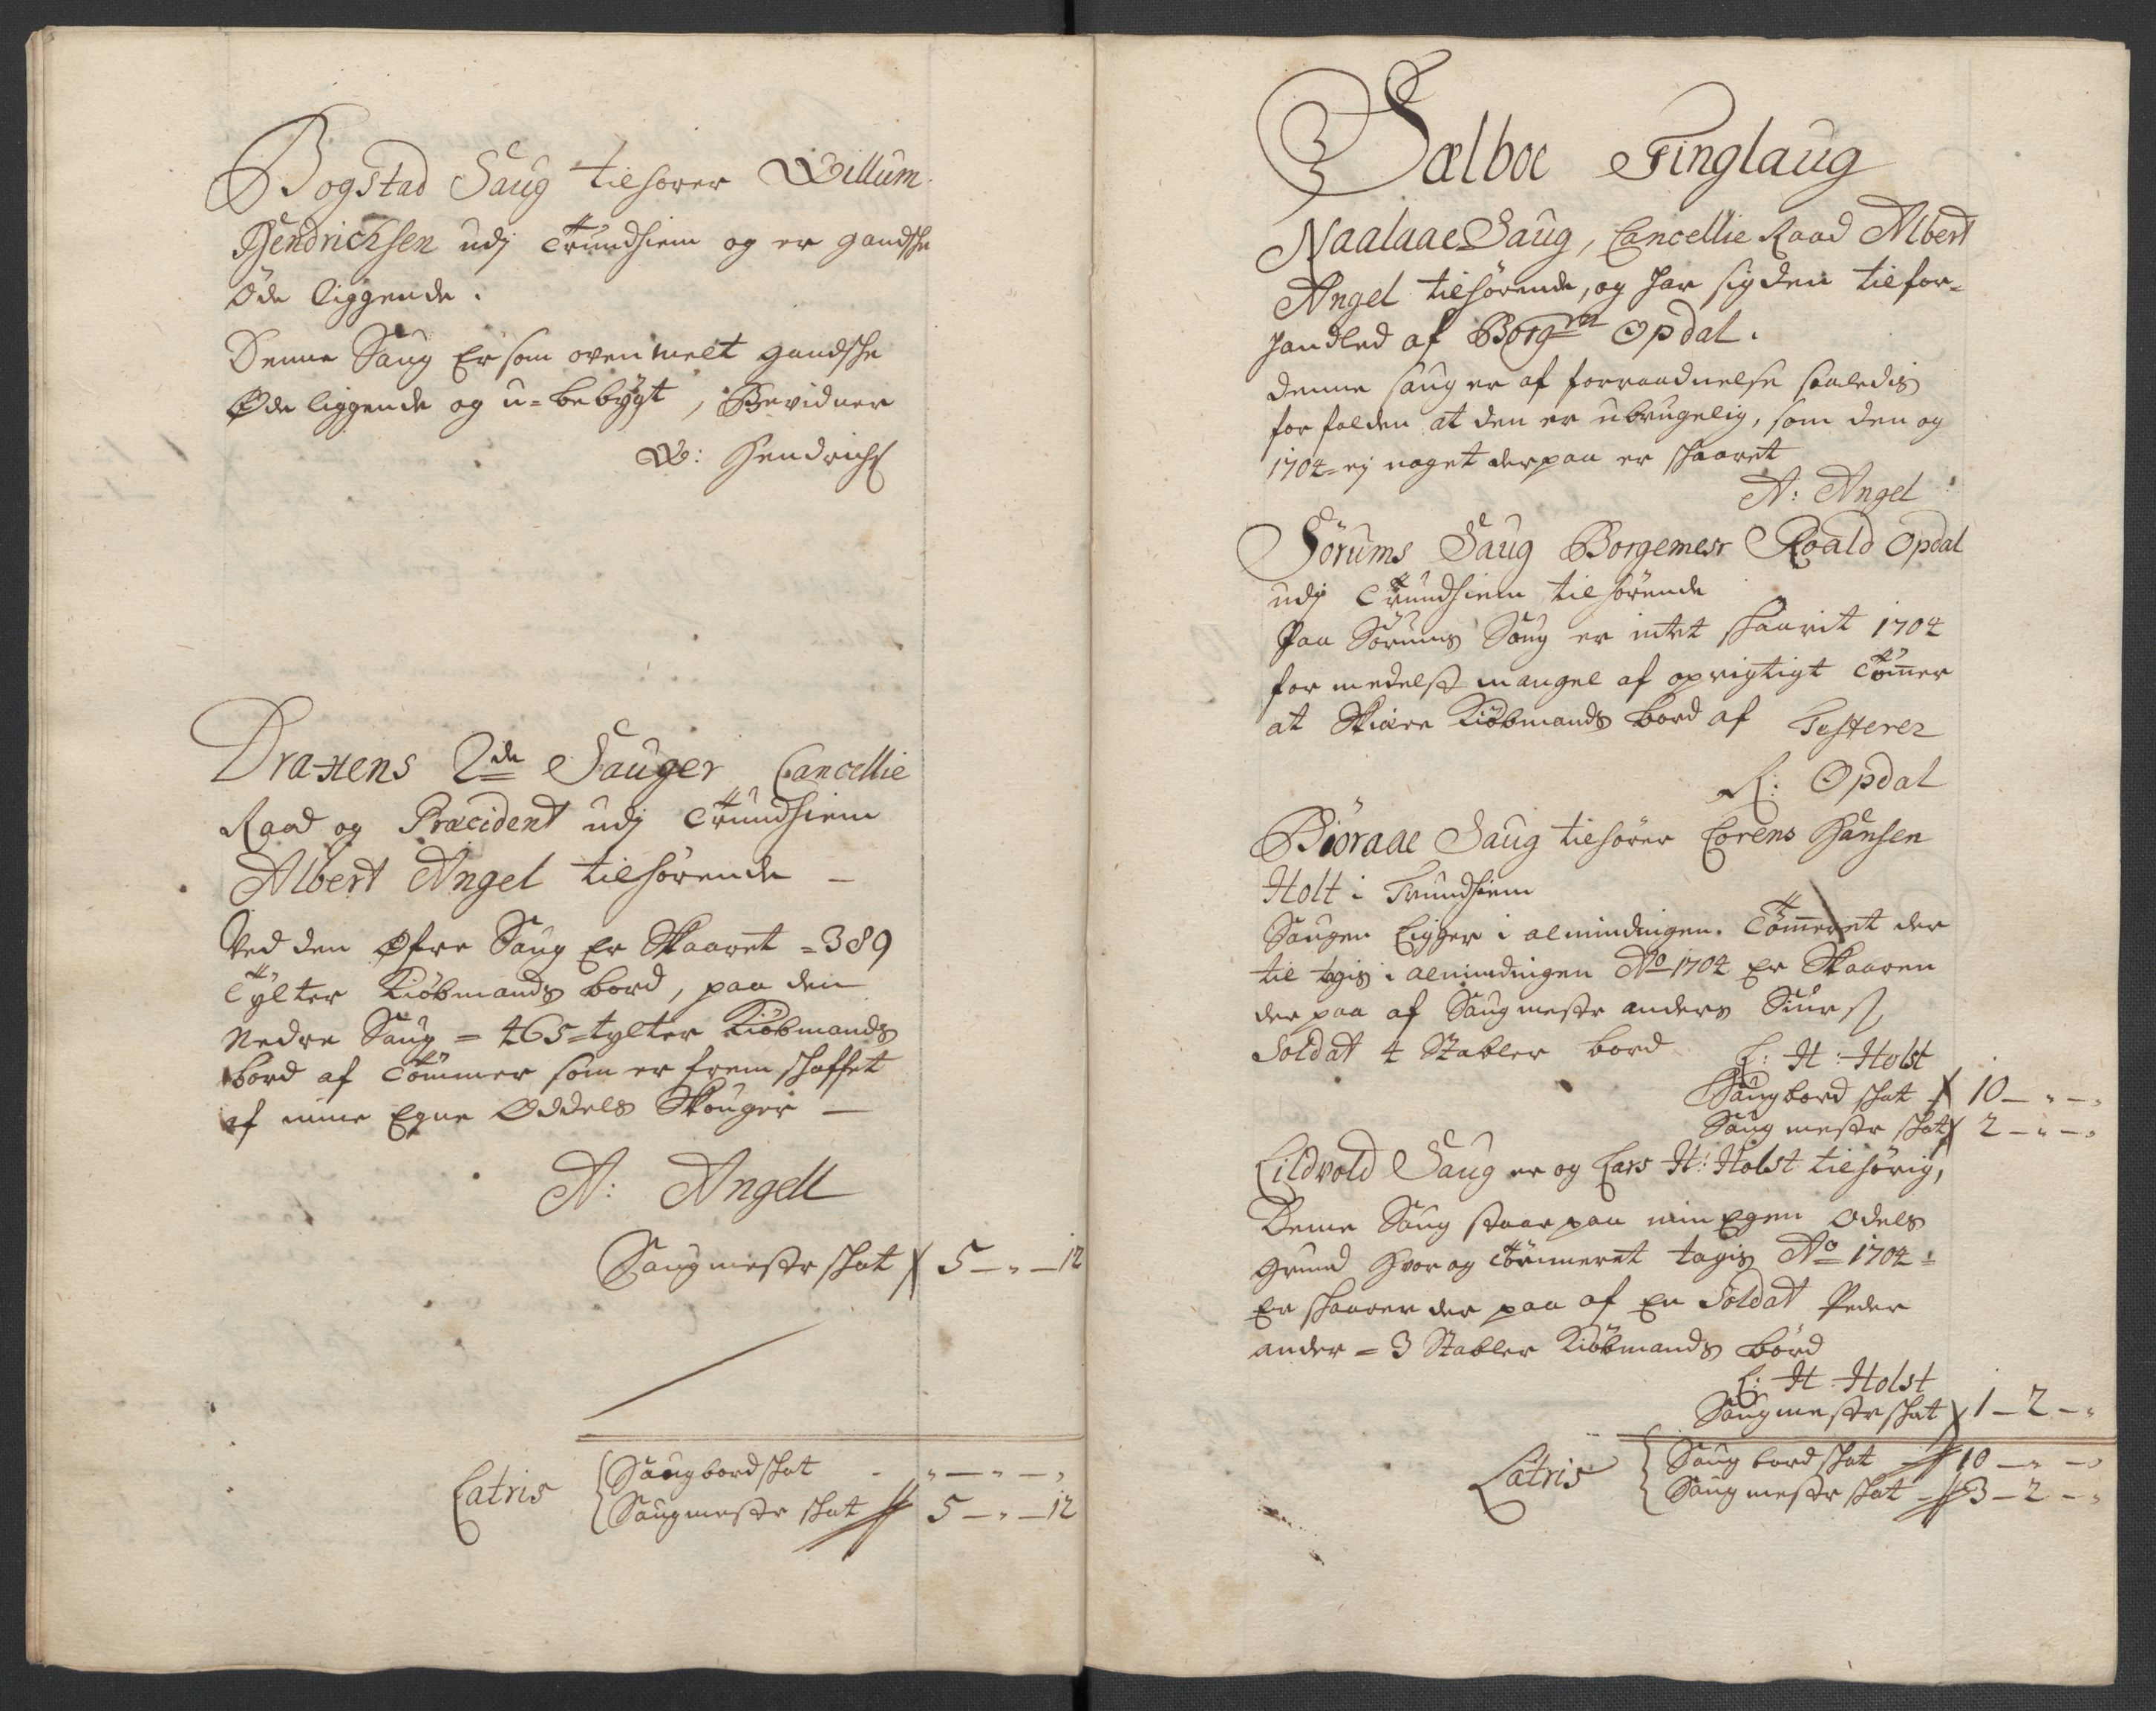 Bogstad Saug tilhører Willum
Hendrichsen udj Trundhiem og er gandsche
Øde liggende.
Denne Saug Er som ovenmelt gandsche
Øde liggende og u-bebygt, Bevidner
W: Hendrichs
Draxens 2de Sauger Cancellie
Raad og Præcident udj Trundhiem
Albert Angel tilhørende —
Ved den Øfre Saug Er Skaaret = 389
Tylter Kiøbmands bord, paa den
Nedre Saug = 465 = tylter Kiøbmands
bord af Tømmer som er fremschaffet
af mine Egne Oddels Skouger —
A: Angell
Saugmestr schat 5 — „ — 12
Latris
Saugbordschat - „ — „ — „
Saugmestr schat 5 — „ — 12
Sælboe Tinglaug
Naalaae Saug, Cancellie Raad Albert
Angel tilhørende, og har sig den tilfor-
handled af Borgmr Opdal.
denne saug er af forraadnelse saaledis
forfalden at den er ubrugelig, som den og
1704 = ej noget derpaa er schaaret
A: Angel
Sørums Saug Borgemesr Roald Opdal
udj Trundhiem tilhørende
Paa Sørums Saug er intet schaarit 1704
formedelst mangel af oprigtigt Tømer
at Skiære Kiøbmands bord af Testerer
R: Opdal
Biøraae Saug tilhører Lorens Hansen
Holt i Trundhiem
Saugen Ligger i almindingen. Tømeret der
til tagis i almindingen Ao 1704 Er Skaaren
der paa af Saugmestr anders Siurs
Soldat 4 Stabler bord
L: H: Holst
Saugbord schat 10 — „ — „
Saugmestr schat 2 — „ — „
Lildvold Saug er og Lars H: Holst tilhørig,
Denne Saug staar paa min Egen Odels
Grund hvor og Tømmeret tagis Ao 1704 =
Er schaaren der paa af En Soldat Peder
ander = 3 Stabler Kiøbmands bord
L: H Holst
Saugmestr schat 1 — 2 — „
Latris
Saug bord schat 10 — „ — „
Saugmestr schat - 3 — 2 — „